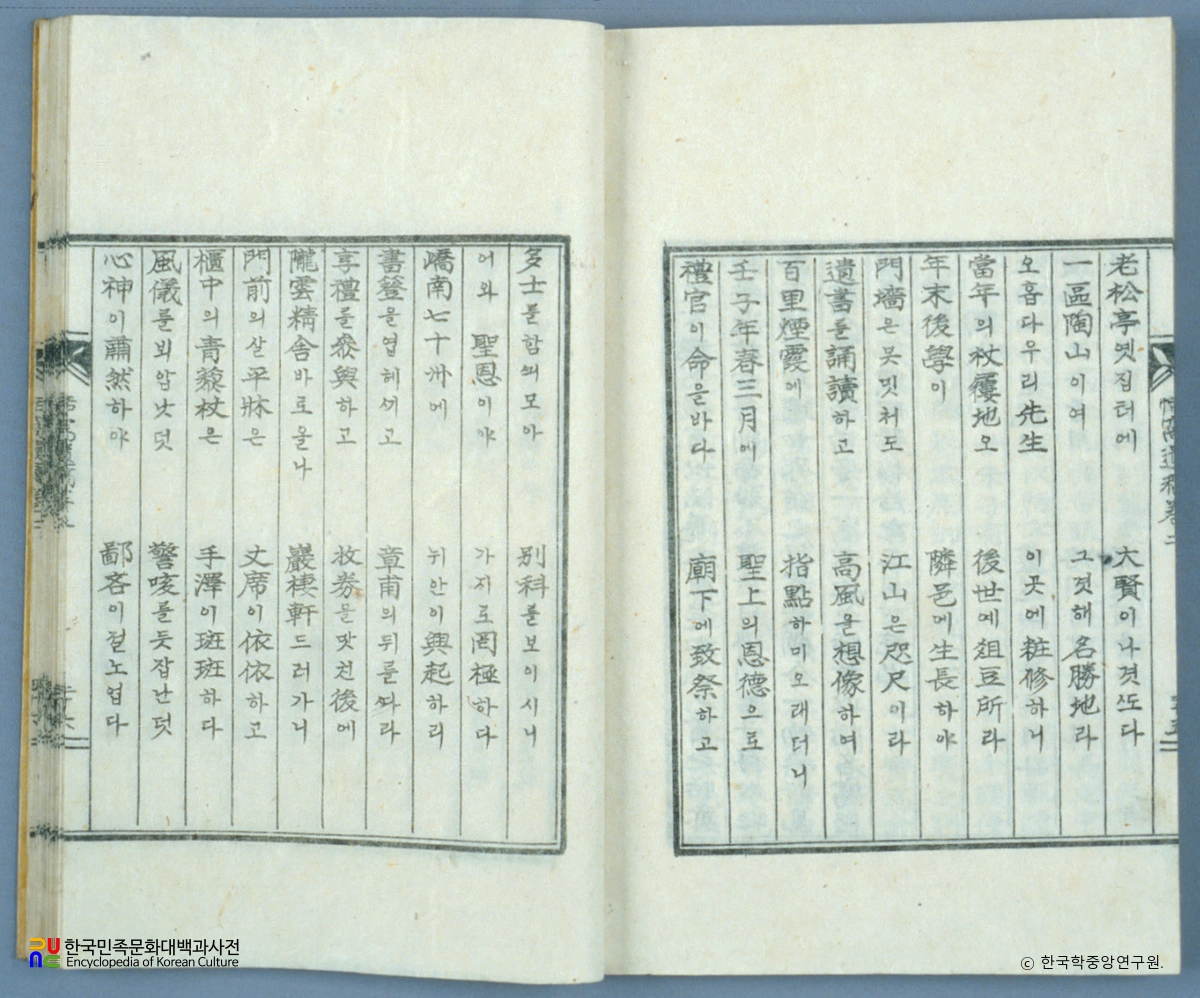 老松亭 옛집터에 大賢이나겻ᄯᅩ다
一區陶山이여 그젓해名勝地라
오홉다우리先生 이곳에粧修하니
當年의杖屨地오 後世예俎豆所라
年末後學이 隣邑에生長하야
門墻은못밋처도 江山은咫尺이라
遺書를誦讀하고 高風을想像하여
百里煙霞에 指點하미오래더니
壬子年春三月에 聖上의恩德으로
禮官이命을바다 廟下에致祭하고
多士를함ᄭᅴ모아 別科를보이시니
어와 聖恩이야 가지로罔極하다
嶠南七十州에 뉘안이興起하리
書簦을엽헤ᄭᅵ고 章甫의뒤를ᄯᅡ라
享禮를叅與하고 收券을맛친後에
隴雲精舍바로올나 巖棲軒드러가니
門前의살平牀은 丈席이依依하고
櫃中의靑藜杖은 手澤이斑斑하다
風儀를뵈압낫덧 警咳를듯잡난덧
心神이肅然하야 鄙吝이절노업다
한국민족문화대백과사전
Encyclopedia of Korean Culture
ⓒ 한국학중앙연구원.